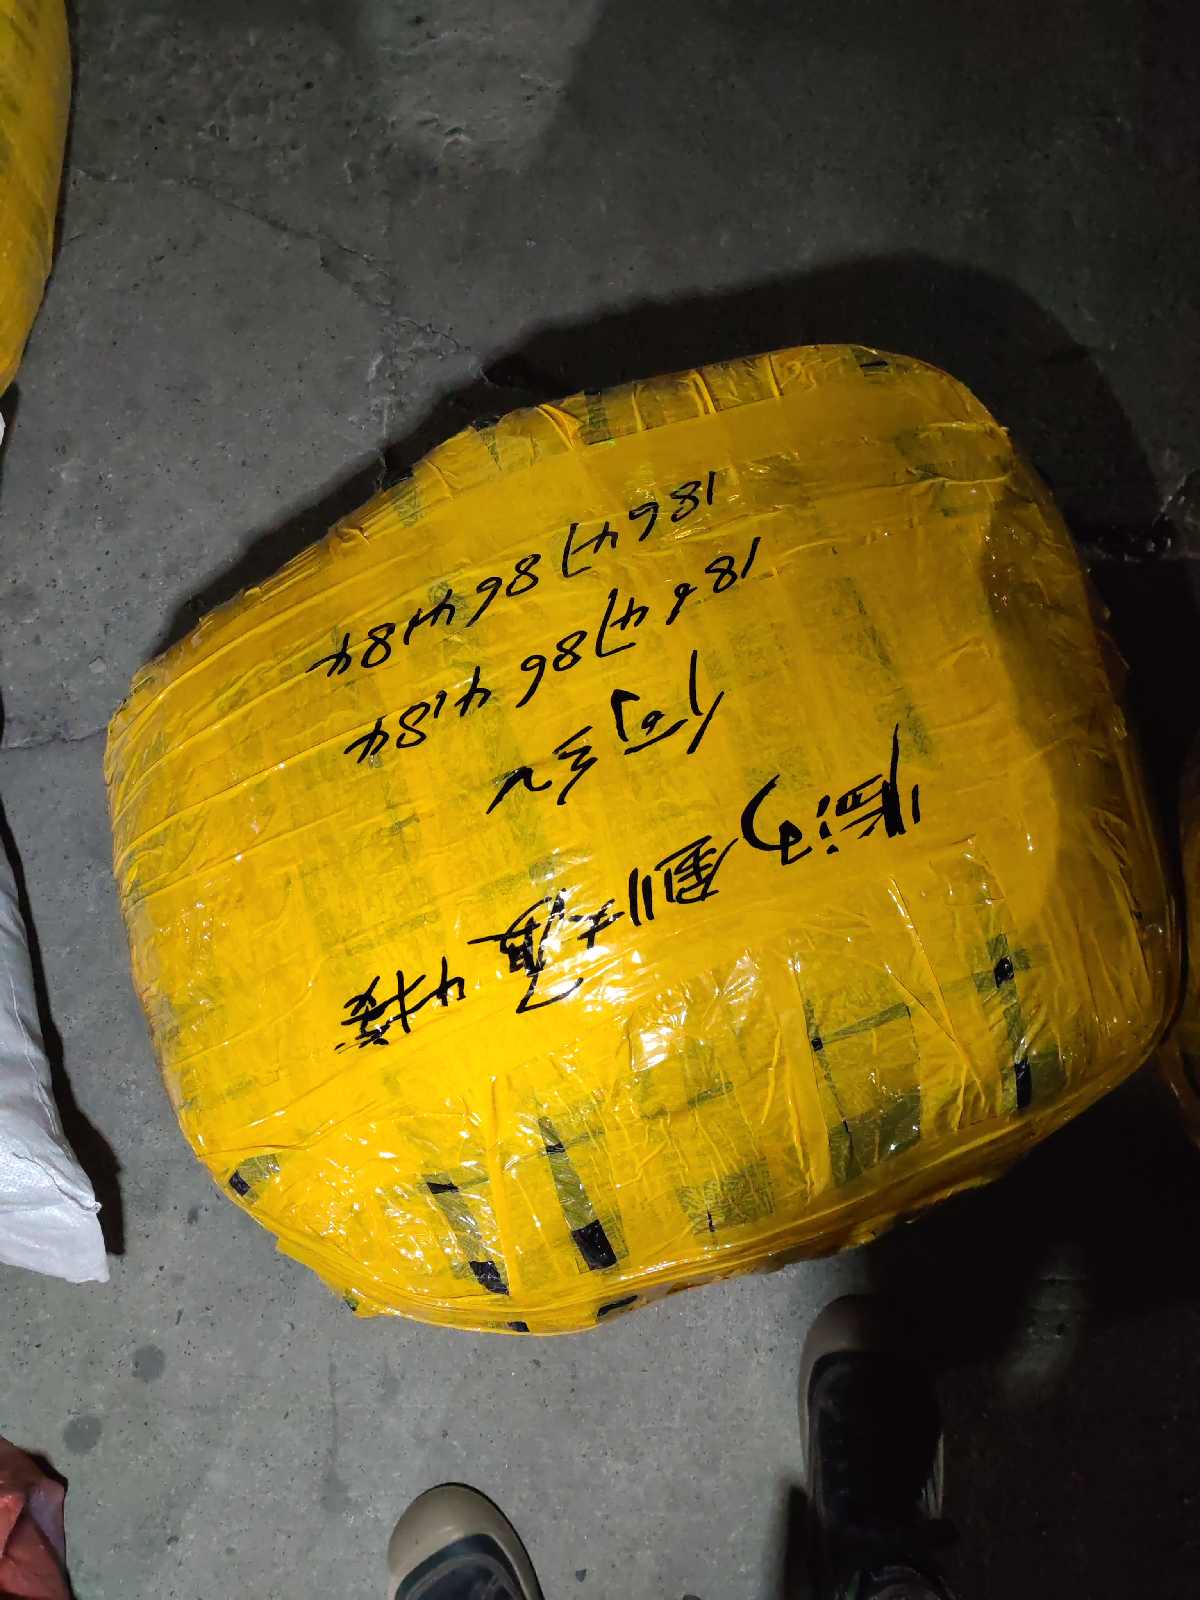 临河金川大厦
4楼
何
18647864184
18647864184